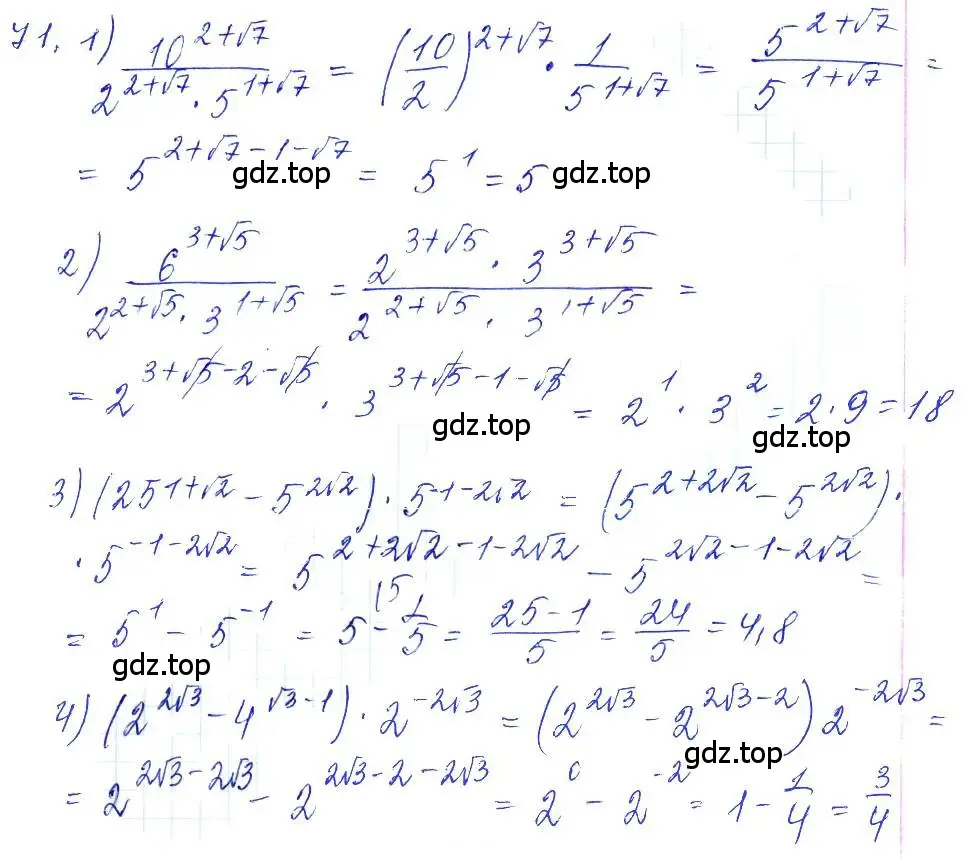 71. 1) \frac{10^{2+√7}}{2^{2+√7} · 5^{1+√7}} = (\frac{10}{2})^{2+√7} · \frac{1}{5^{1+√7}} = \frac{5^{2+√7}}{5^{1+√7}} =
= 5^{2+√7-1-√7} = 5^1 = 5
gdz.top gdz.top
2) \frac{6^{3+√5}}{2^{2+√5} · 3^{1+√5}} = \frac{2^{3+√5} · 3^{3+√5}}{2^{2+√5} · 3^{1+√5}} =
= 2^{3+√5-2-√5} · 3^{3+√5-1-√5} = 2^1 · 3^2 = 2 · 9 = 18
gdz.top gdz.top
3) (25^{1+√2} - 5^{2√2}) · 5^{-1-2√2} = (5^{2+2√2} - 5^{2√2}) ·
· 5^{-1-2√2} = 5^{2+2√2-1-2√2} - 5^{2√2-1-2√2} =
= 5^1 - 5^{-1} = 5 - \frac{1}{5} = \frac{25-1}{5} = \frac{24}{5} = 4,8
gdz.top
4) (2^{2√3} - 4^{√3-1}) · 2^{-2√3} = (2^{2√3} - 2^{2√3-2}) 2^{-2√3} =
gdz.top
= 2^{2√3-2√3} - 2^{2√3-2-2√3} = 2^0 - 2^{-2} = 1 - \frac{1}{4} = \frac{3}{4}